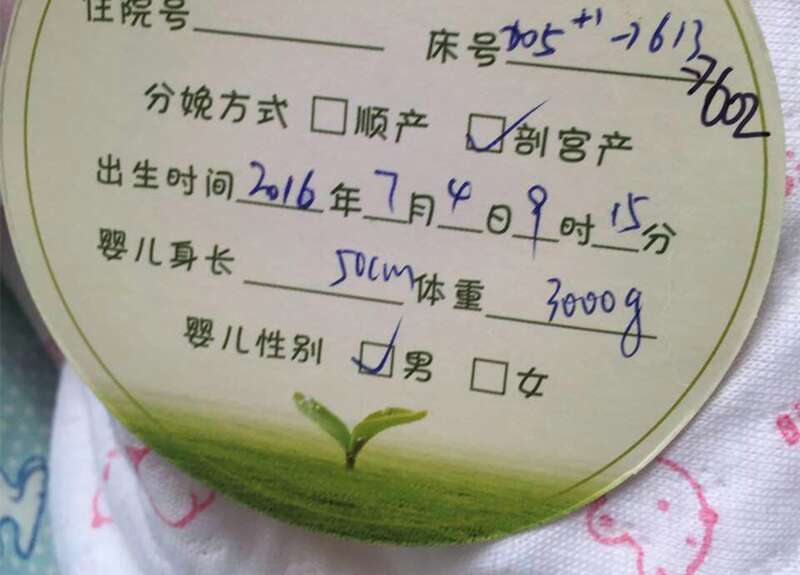 住院号 床号 705+1→613
→602
分娩方式 □顺产 ☑剖宫产
出生时间 2016 年 7 月 4 日 9 时 15 分
婴儿身长 50cm 体重 3000g
婴儿性别 ☑男 □女